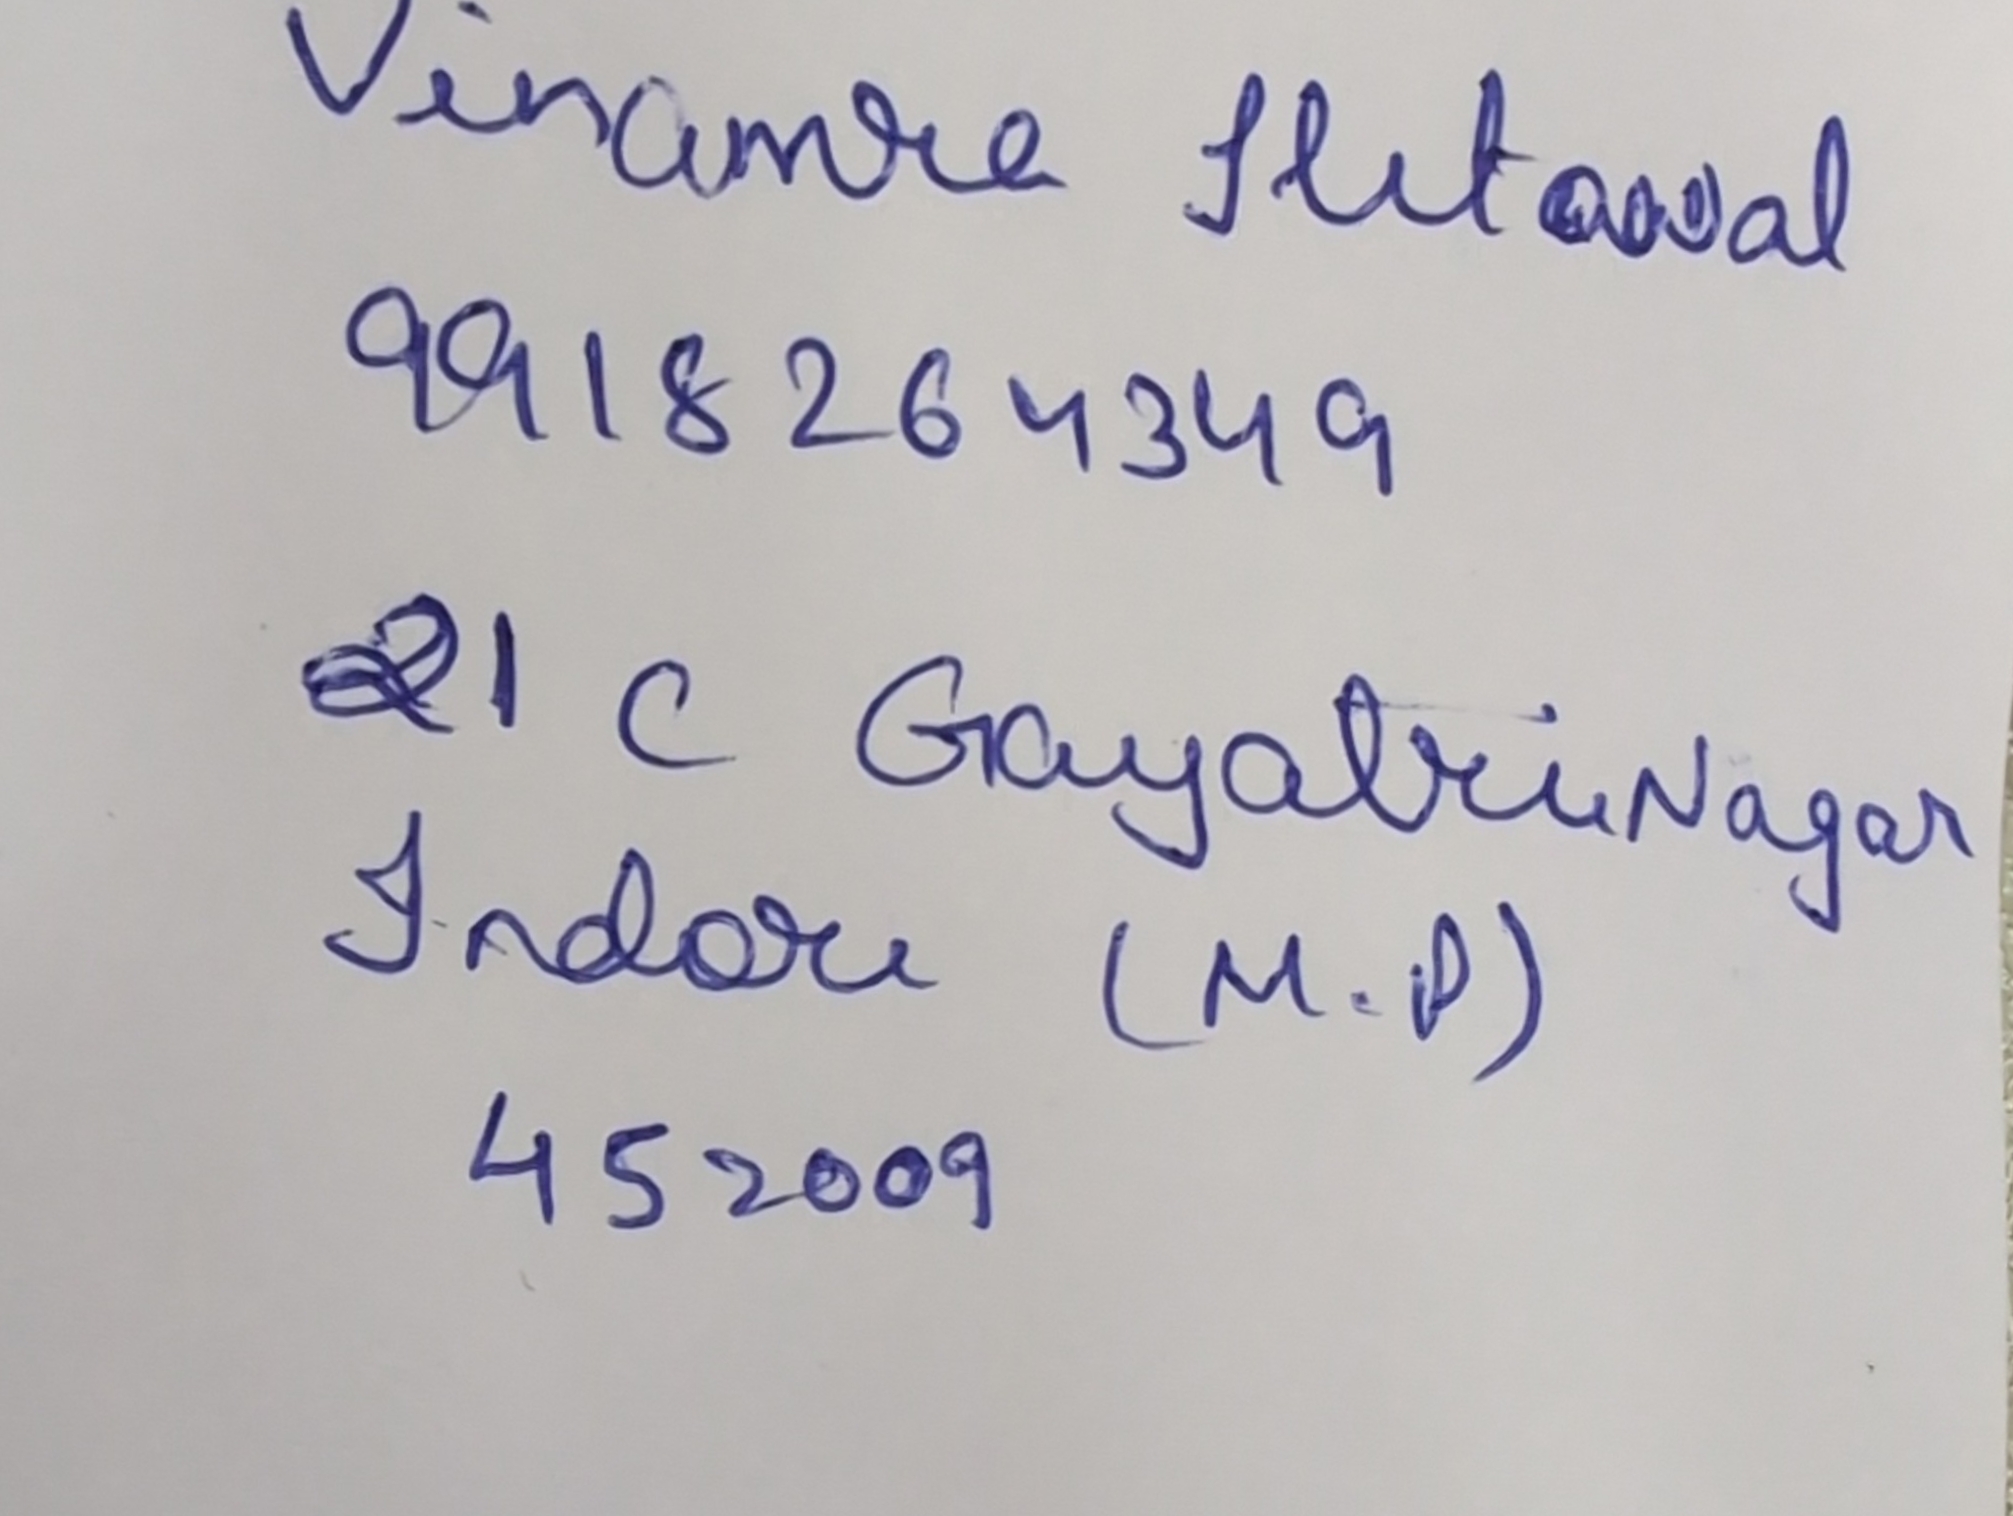 Vinamra Ilitawal
9918264349
21 C Gayatri Nagar
Indore (M.P)
452009